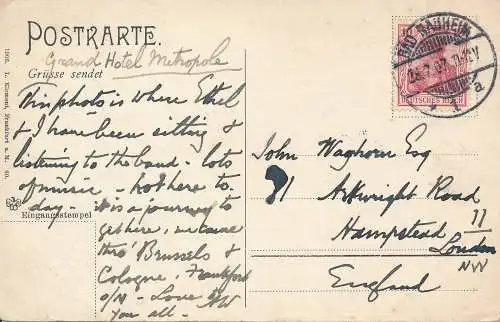 POSTKARTE.
Grand Hotel Metropole
Grüsse sendet
This photo is where Ethel
& I have been sitting &
listening to the band - lots
of music - hot here to-
day - it is a journey to
get here, we came
thro' Brussels &
Cologne, Frankfort
o/M - Love to
you all - 
Eingangsstempel
1902. L. Klement, Frankfurt a. M. 60.
BAD NAUHEIM
7.07
1 a
10
DEUTSCHES REICH
John Waghorn Esq
21 Arkwright Road
Hampstead
London
NW
England